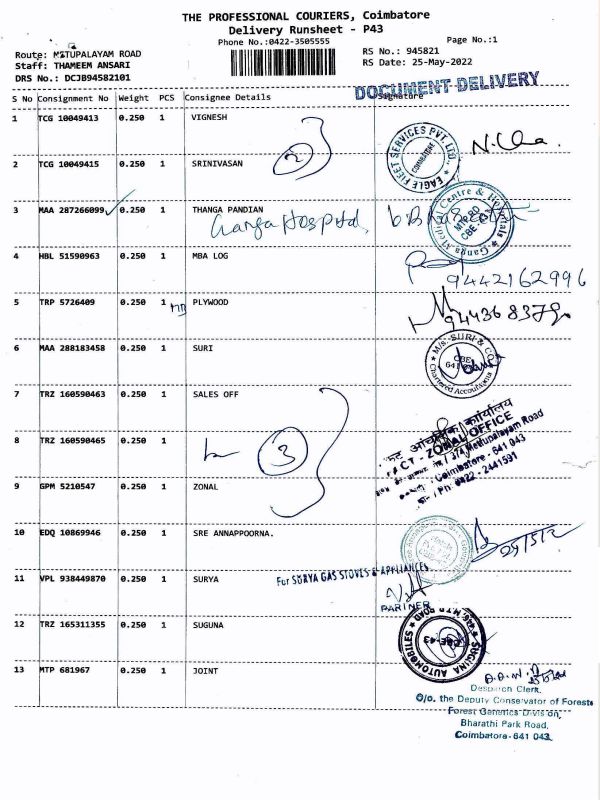 THE PROFESSIONAL COURIERS, Coimbatore
Delivery Runsheet - P43
Phone No.:0422-3505555
Page No.:1
Route: METUPALAYAM ROAD
RS No.: 945821
Staff: THAMEEM ANSARI
RS Date: 25-May-2022
DRS No.: DCJB94582101
DOCUMENT DELIVERY
S No Consignment No Weight PCS Consignee Details Signature
1 TCG 10049413 0.250 1 VIGNESH
2 TCG 10049415 0.250 1 SRINIVASAN
2
EAGLE FLEET SERVICES PVT. LTD.,
COIMBATORE
3 MAA 287266099 0.250 1 THANGA PANDIAN
Ganga Hospital,
Ganga Medical Centre & Hospitals
MTP.RD
CBE-43
4 HBL 51590963 0.250 1 MBA LOG
9442162996
5 TRP 5726409 0.250 1 PLYWOOD
6 MAA 288183458 0.250 1 SURI
M/s. SURI & CO.
CBE
Chartered Accountants
7 TRZ 160590463 0.250 1 SALES OFF
8 TRZ 160590465 0.250 1
3
ZONAL OFFICE
374 Mettupalayam Road
Coimbatore - 641 043
Ph: 0422 - 2441591
9 GPM 5210547 0.250 1 ZONAL
10 EDQ 10869946 0.250 1 SRE ANNAPPOORNA.
11 VPL 938449870 0.250 1 SURYA
For SURYA GAS STOVES & APPLIANCES
PARTNER
12 TRZ 165311355 0.250 1 SUGUNA
SUGUNA AUTOMOBILES
CBE-43
13 MTP 681967 0.250 1 JOINT
Despatch Clerk,
O/o. the Deputy Conservator of Forests
Forest Genetics Division,
Bharathi Park Road,
Coimbatore-641 043.